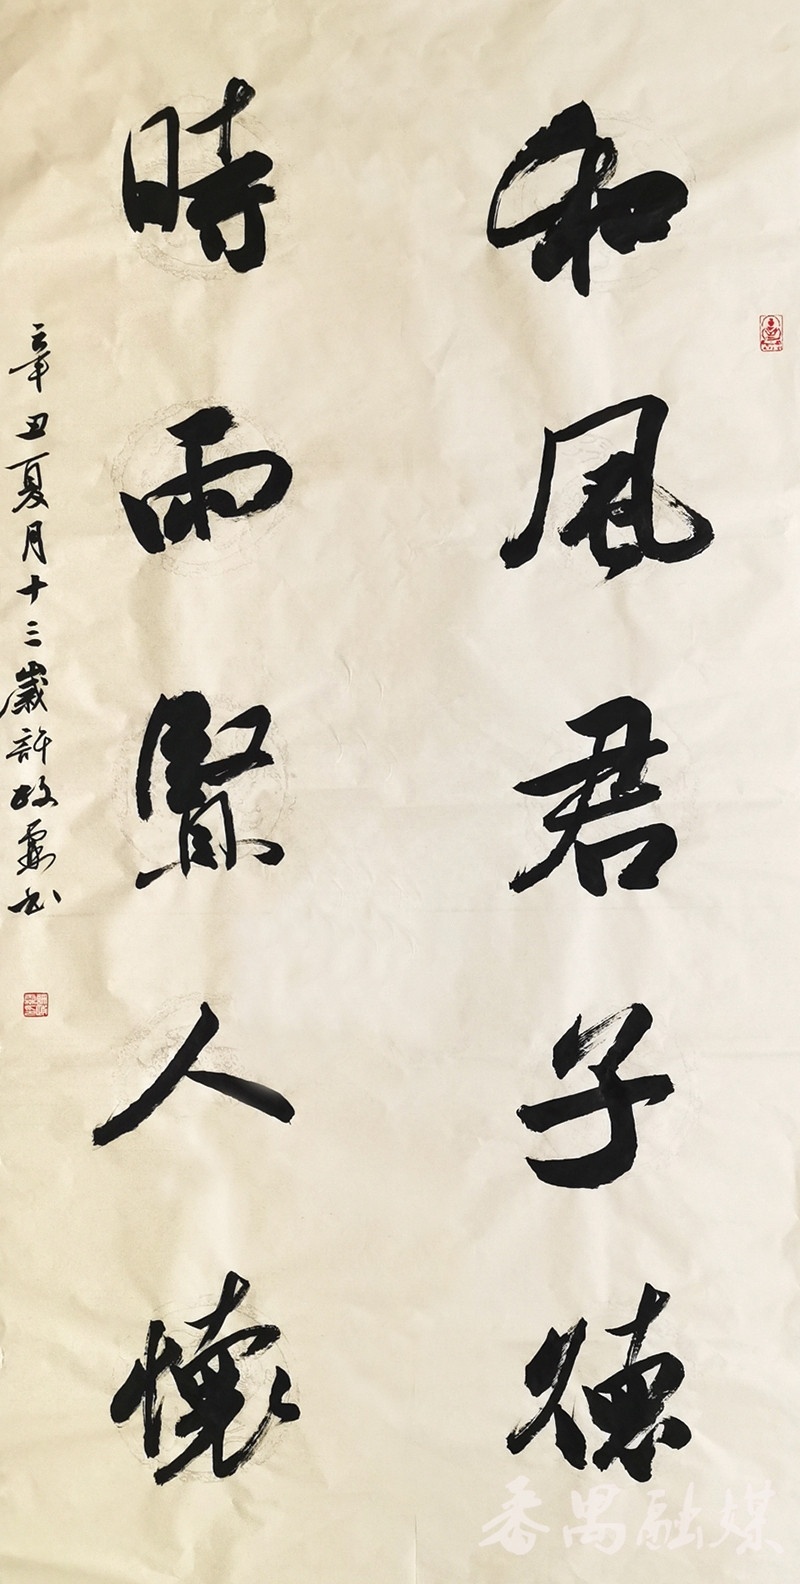 和風君子德
時雨賢人懷
辛丑夏月十三歲許政霖书
番禺融媒